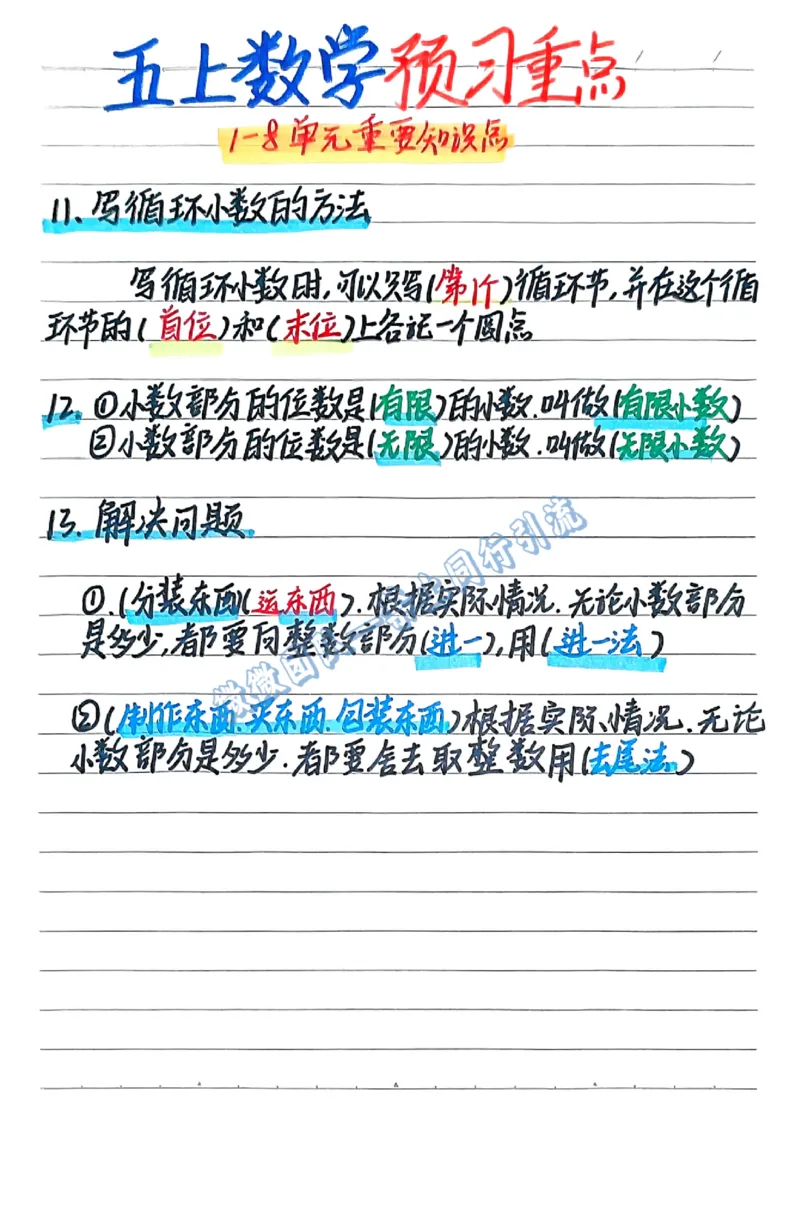 五上数学预习重点
1-8单元重要知识点
11、写循环小数的方法
写循环小数时,可以只写(第1个)循环节,并在这个循
环节的(首位)和(末位)上各记一个圆点
12. ①小数部分的位数是(有限)的小数.叫做(有限小数)
②小数部分的位数是(无限)的小数.叫做(无限小数)
13. 解决问题.
①.(分装东西(运东西).根据实际情况.无论小数部分
是多少,都要向整数部分(进一),用(进一法)
②(制作东西.买东西.包装东西)根据实际情况.无论
小数部分是多少.都要舍去取整数用(去尾法)
同行引流
微微团队